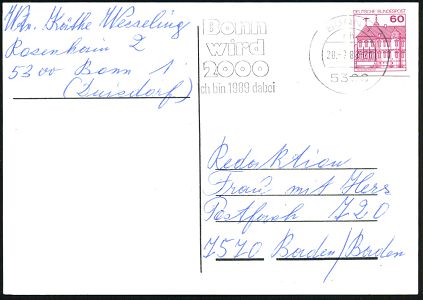 Wtn. Käthe Wesseling
Rosenhain 2
5300 Bonn 1
(Duisdorf)
Bonn
wird
2000
ich bin 1989 dabei
5300
DEUTSCHE BUNDESPOST
60
Redaktion
Frau mit Herz
Postfach 720
7570 Baden/Baden